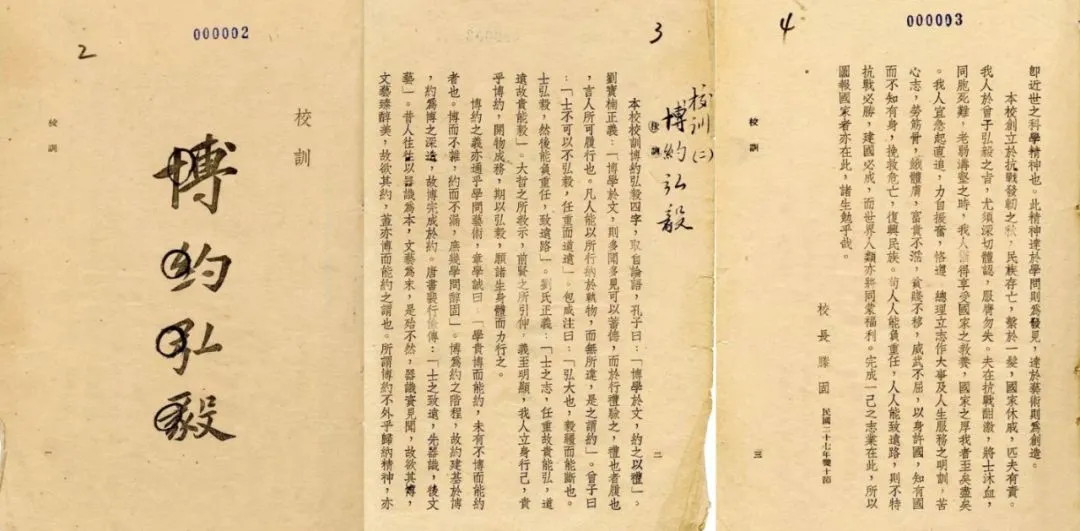 2
000002
校訓
博約弘毅
校訓
一
3
校訓(二)
博約弘毅
校訓
本校校訓博約弘毅四字，取自論語，孔子曰：「博學於文，約之以禮」。
劉寶楠正義：「博學於文，則多聞多見可以蓄德，而於行禮驗之，禮也者履也
，言人所可履行也。凡人能以所行納於軌物，而無所違，是之謂約」。曾子曰
：「士不可以不弘毅，任重而道遠」。包咸注曰：「弘大也，毅彊而能斷也。
士弘毅，然後能負重任，致遠路」。劉氏正義：「士之志，任重故貴能弘，道
遠故貴能毅」。大哲之所教示，前賢之所引伸，義至明顯，我人立身行己，貴
乎博約，開物成務，期以弘毅，願諸生身體而力行之。
博約之義亦通乎學問藝術，章學誠曰：「學貴博而能約，未有不博而能約
者也。博而不雜，約而不漏，庶幾學問醇固」。博為約之階程，故約建基於博
，約為博之深造，故博完成於約。唐書裴行儉傳：「士之致遠，先器識，後文
藝」。昔人往往以器識為本，文藝為末，是殆不然，器識資見聞，故欲其博，
文藝臻醇美，故欲其約，蓋亦博而能約之謂也。所謂博約不外乎歸納精神，亦
二
4
000003
即近世之科學精神也。此精神達於學問則為發見，達於藝術則為創造。
本校創立於抗戰發軔之秋，民族存亡，繫於一髮，國家休戚，匹夫有責。
我人於曾子弘毅之旨，尤須深切體認，服膺勿失。夫在抗戰酣激，將士沐血，
同胞死難，老弱溝壑之時，我人猶得享受國家之教養，國家之厚我者至矣盡矣
。我人宜急起直追，力自振奮，恪遵　總理立志作大事及人生服務之明訓，苦
心志，勞筋骨，餓體膚，富貴不淫，貧賤不移，威武不屈，以身許國，知有國
而不知有身，挽救危亡，復興民族。苟人人能負重任，人人能致遠路，則不特
抗戰必勝，建國必成，而世界人類亦將同蒙福利。完成一己之志業在此，所以
圖報國家者亦在此，諸生勉乎哉。
校長滕固 民國二十七年雙十節
校訓
三